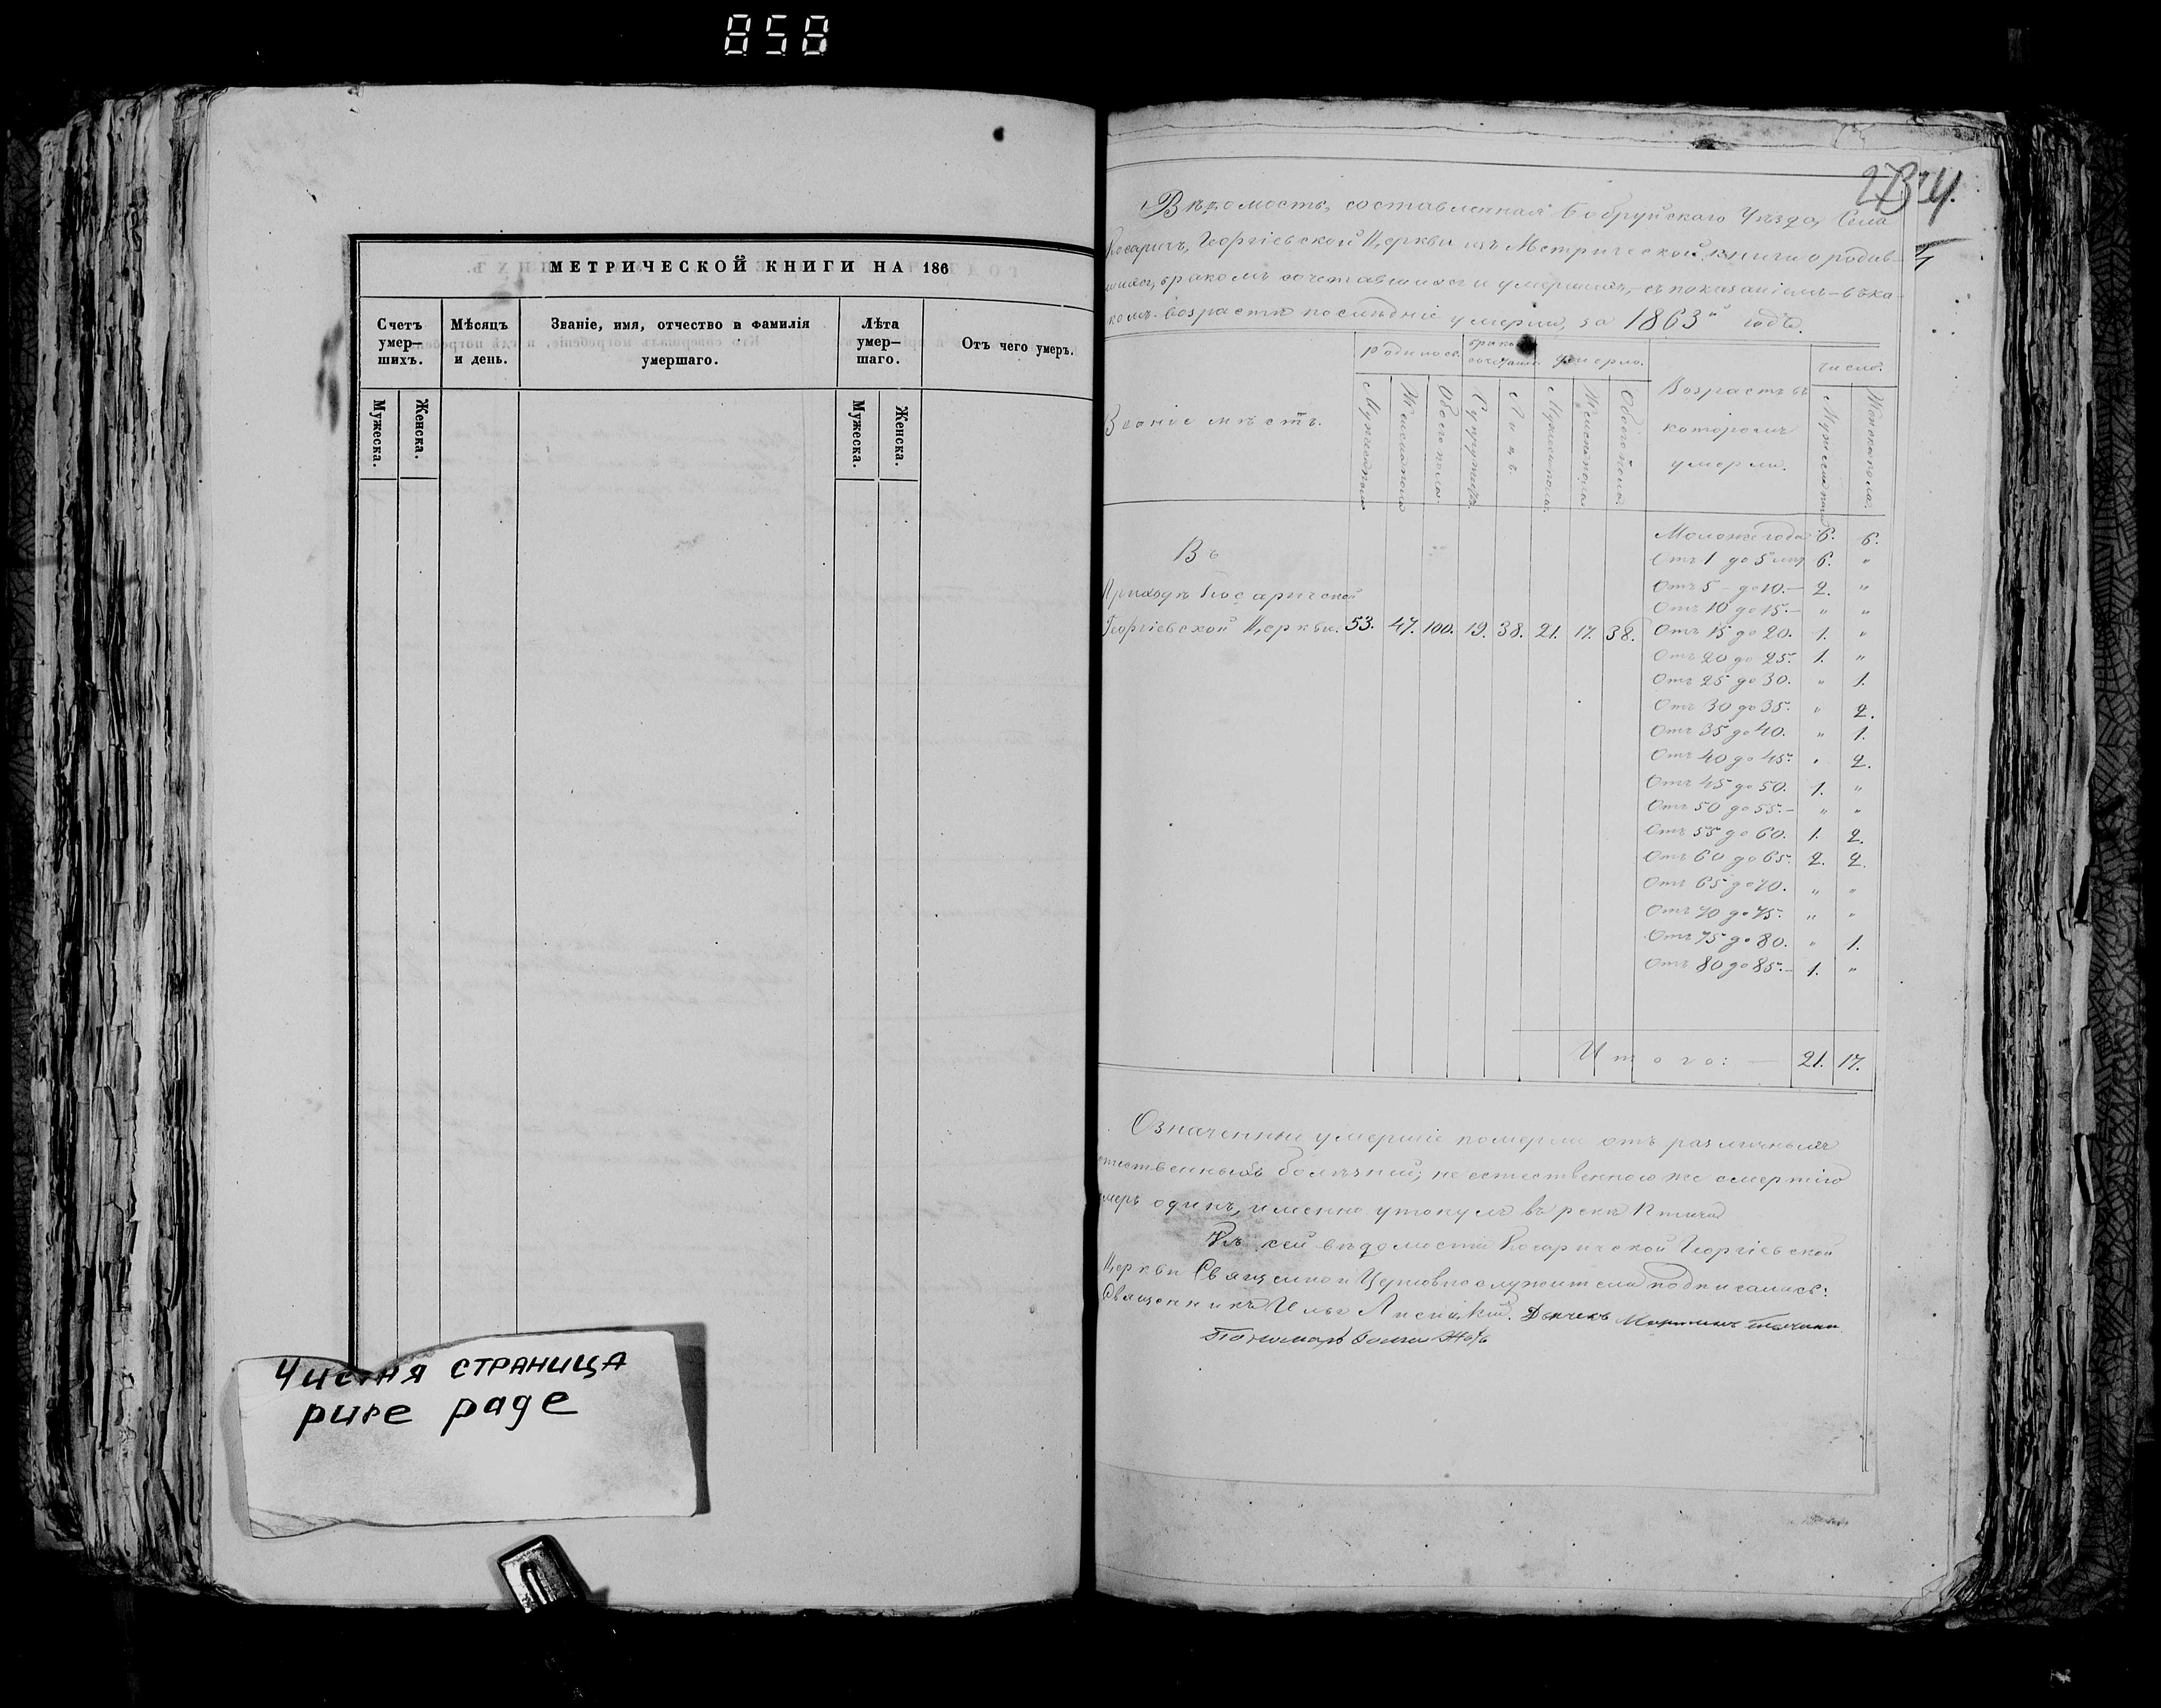 858
МЕТРИЧЕСКОЙ КНИГИ НА 186
Счетъ умер— шихъ.
Мѣсяцъ и день.
Званіе, имя, отчество и фамилія умершаго.
Лѣта умер— шаго.
Отъ чего умеръ.
Мужеска.
Женска.
Мужеска.
Женска.
Чистая страница
pure page
Вѣдомость, составленная Бобруйскаго Уѣзда, Села
Косаричъ, Георгіевской Церкви изъ Метрической книги о родив-
шихся, бракомъ сочетавшихся и умершихъ, съ показаніемъ въ ка-
комъ возрастѣ послѣдніе умерли, за 1863й годъ.
Званіе мѣстъ.
родилось.
бракомъ сочетались.
умерло.
Возрастъ въ которомъ умерли.
число.
Мужеска пола
Женска пола
Обоего пола
Супружествъ
Лицъ.
Мужеска пола.
Женска пола
Обоего пола.
Мужеска пола
Женска пола.
Въ
Приходѣ Косаричской
Георгіевской Церкви. 53. 47. 100. 19. 38. 21. 17. 38.
Моложе года 6. 6.
Отъ 1 до 5 лѣтъ 6. "
Отъ 5 до 10.— 2. "
Отъ 10 до 15.— " "
Отъ 15 до 20. 1. "
Отъ 20 до 25. 1. "
Отъ 25 до 30. " 1.
Отъ 30 до 35. " 2.
Отъ 35 до 40. " 1.
Отъ 40 до 45. " 2.
Отъ 45 до 50. 1. "
Отъ 50 до 55.— " "
Отъ 55 до 60. 1. 2.
Отъ 60 до 65. 2. 2.
Отъ 65 до 70. " "
Отъ 70 до 75. " "
Отъ 75 до 80. " 1.
Отъ 80 до 85.— 1. "
Итого: — 21. 17.
Означенные умершіе померли отъ различныхъ
естественныхъ болѣзней; не естественною же смертію
умеръ одинъ, именно утонулъ въ рекѣ Птичѣ
Къ сей вѣдомости Косаричской Георгіевской
Церкви Священно и Церковнослужители подписались:
Священникъ Илья Лисицкій. Дьячекъ Мартинъ
Пономарь